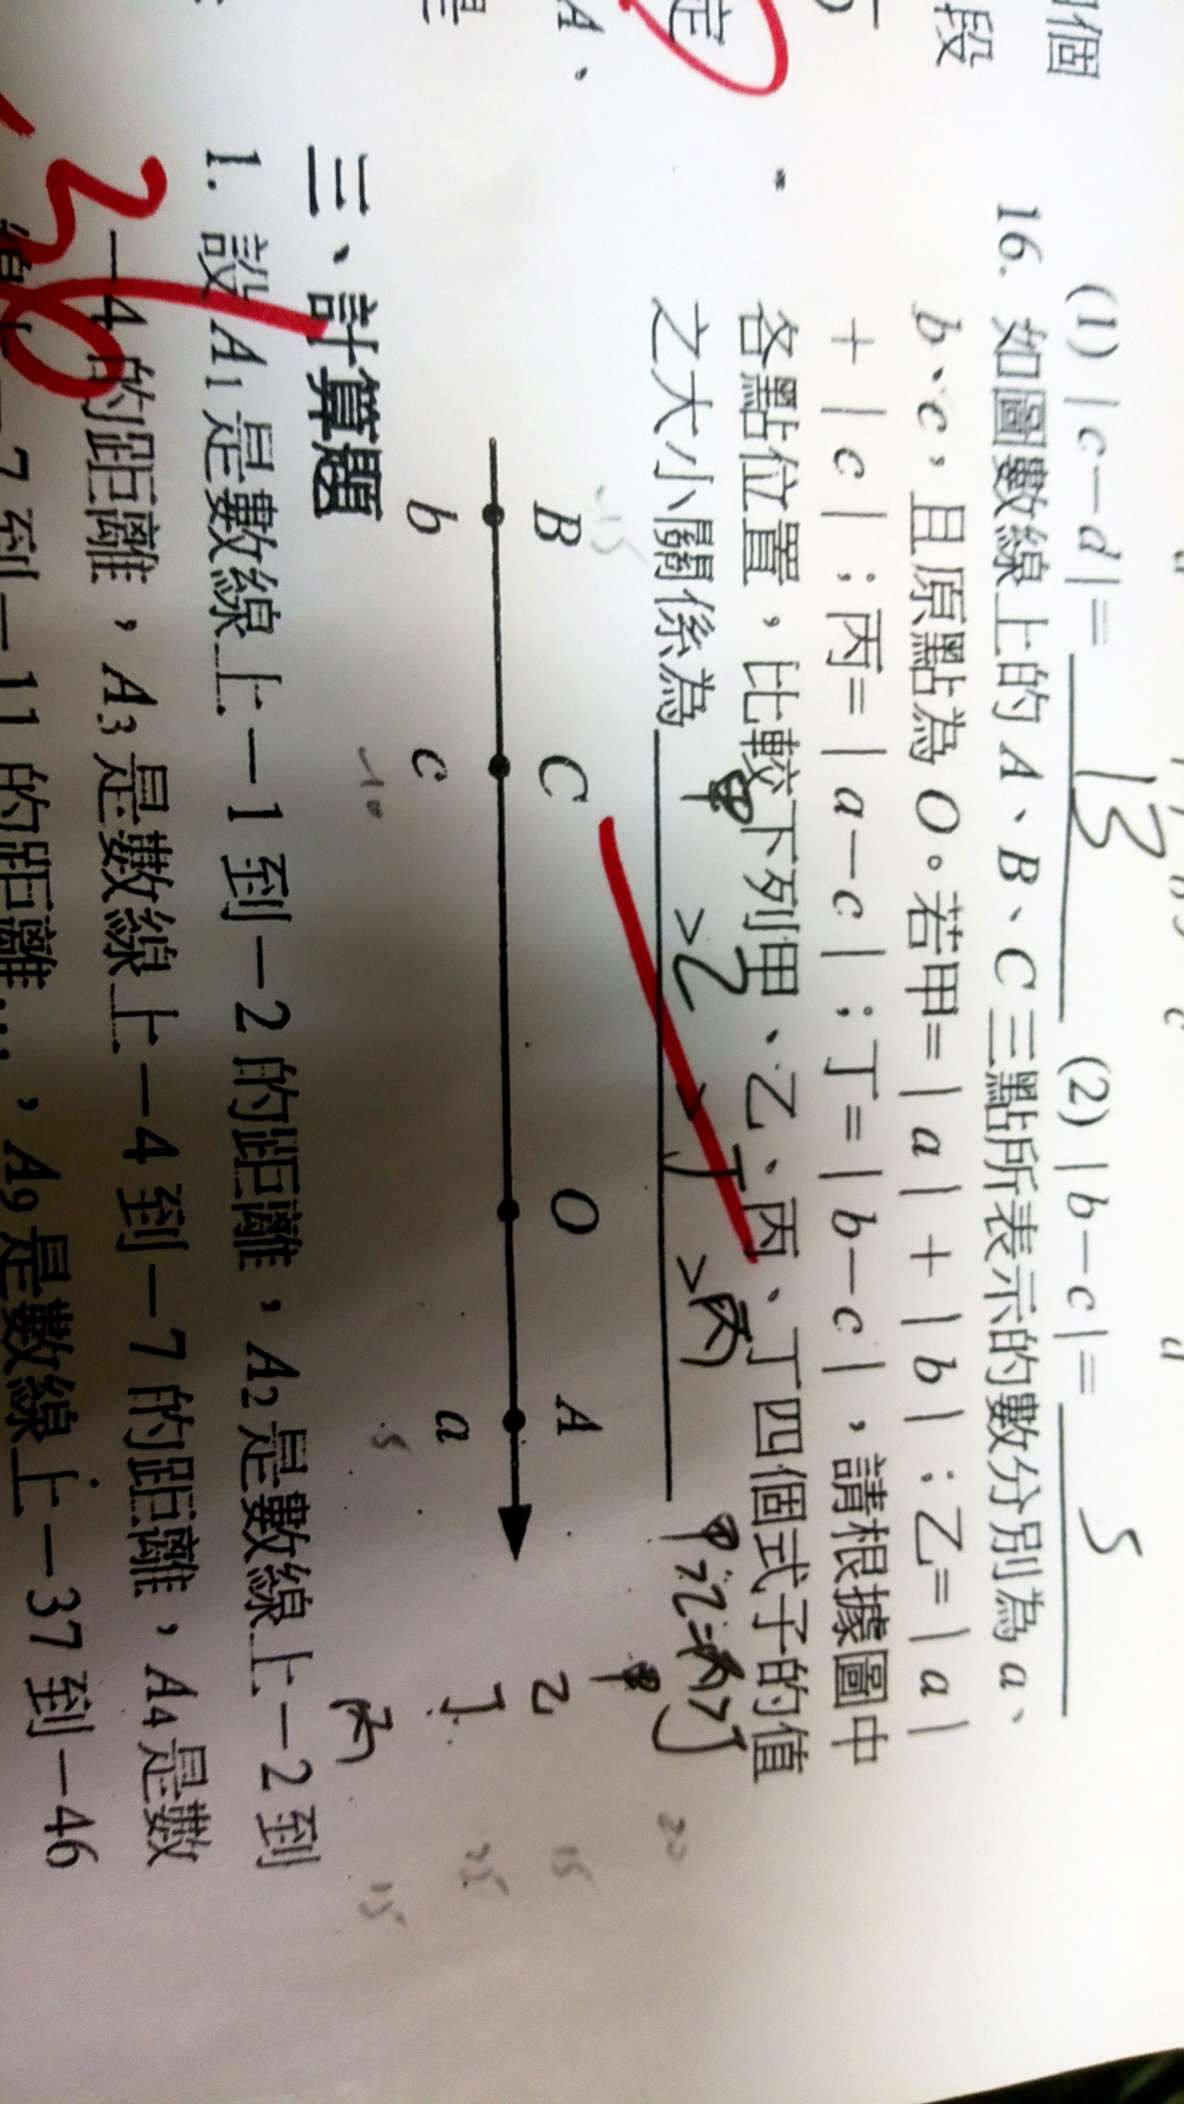 個
段
定
A、
(1)|c-d|= 13 (2)|b-c|= 5
16. 如圖數線上的 A、B、C 三點所表示的數分別為 a、
b、c，且原點為 O。若甲=|a|+|b|；乙=|a|
+|c|；丙=|a-c|；丁=|b-c|，請根據圖中
各點位置，比較下列甲、乙、丙、丁四個式子的值
之大小關係為 甲>乙>丁>丙 甲>乙=丙>丁
-15
B C O A
b c a
-10 5
甲 20
乙 15
丁 25
丙 15
三、計算題
1. 設 A1 是數線上-1 到-2 的距離，A2 是數線上-2 到
-4 的距離，A3 是數線上-4 到-7 的距離，A4 是數
-7 到-11 的距離…，A9 是數線上-37 到-46